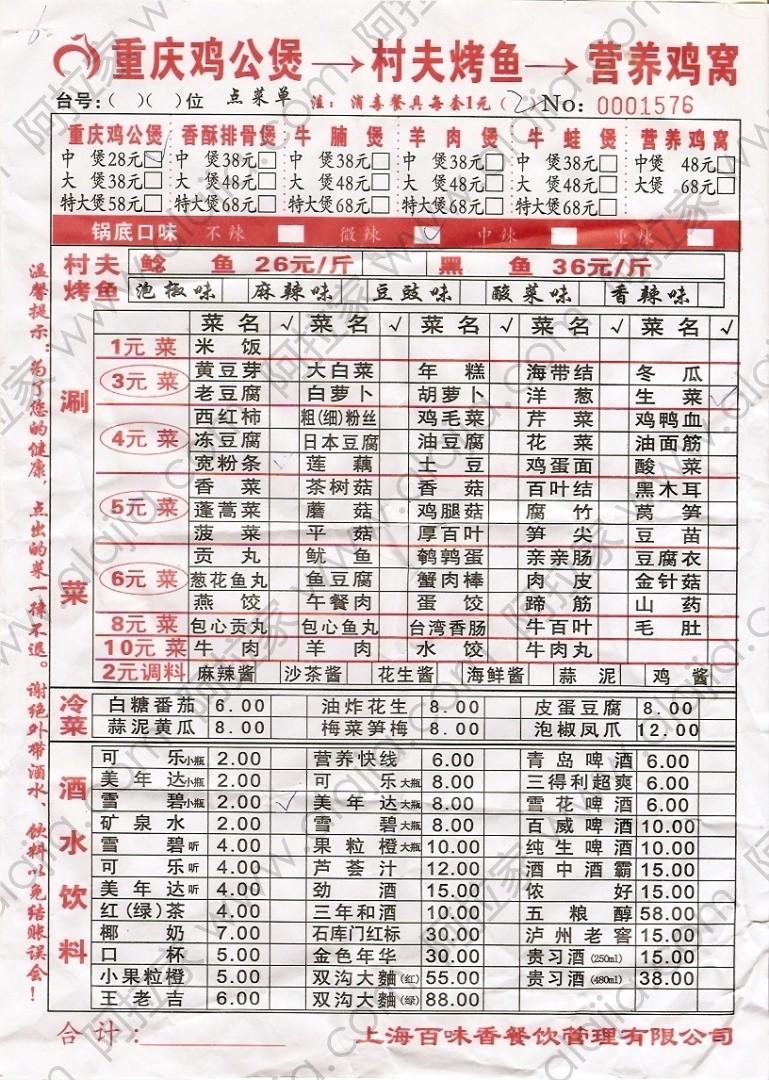 重庆鸡公煲→村夫烤鱼→营养鸡窝
台号:( )( )位 点菜单 注:消毒餐具每套1元(2) No: 0001576
重庆鸡公煲 香酥排骨煲 牛腩煲 羊肉煲 牛蛙煲 营养鸡窝
中煲28元 中煲38元 中煲38元 中煲38元 中煲38元 中煲48元
大煲38元 大煲48元 大煲48元 大煲48元 大煲48元 大煲68元
特大煲58元 特大煲68元 特大煲68元 特大煲68元 特大煲68元
锅底口味 不辣 微辣 中辣 重辣
村夫烤鱼 鲶鱼 26元/斤 黑鱼 36元/斤
泡椒味 麻辣味 豆豉味 酸菜味 香辣味
涮菜
菜名 √ 菜名 √ 菜名 √ 菜名 √ 菜名 √
1元菜 米饭
3元菜 黄豆芽 大白菜 年糕 海带结 冬瓜
老豆腐 白萝卜 胡萝卜 洋葱 生菜
4元菜 西红柿 粗(细)粉丝 鸡毛菜 芹菜 鸡鸭血
冻豆腐 日本豆腐 油豆腐 花菜 油面筋
宽粉条 莲藕 土豆 鸡蛋面 酸菜
5元菜 香菜 茶树菇 香菇 百叶结 黑木耳
蓬蒿菜 蘑菇 鸡腿菇 腐竹 莴笋
菠菜 平菇 厚百叶 笋尖 豆苗
6元菜 贡丸 鱿鱼 鹌鹑蛋 亲亲肠 豆腐衣
葱花鱼丸 鱼豆腐 蟹肉棒 肉皮 金针菇
燕饺 午餐肉 蛋饺 蹄筋 山药
8元菜 包心贡丸 包心鱼丸 台湾香肠 牛百叶 毛肚
10元菜 牛肉 羊肉 水饺 牛肉丸
2元调料 麻辣酱 沙茶酱 花生酱 海鲜酱 蒜泥 鸡酱
冷菜
白糖番茄 6.00 油炸花生 8.00 皮蛋豆腐 8.00
蒜泥黄瓜 8.00 梅菜笋梅 8.00 泡椒凤爪 12.00
酒水饮料
可乐小瓶 2.00 营养快线 6.00 青岛啤酒 6.00
美年达小瓶 2.00 可乐大瓶 8.00 三得利超爽 6.00
雪碧小瓶 2.00 美年达大瓶 8.00 雪花啤酒 6.00
矿泉水 2.00 雪碧大瓶 8.00 百威啤酒 10.00
雪碧听 4.00 果粒橙大瓶 10.00 纯生啤酒 10.00
可乐听 4.00 芦荟汁 12.00 酒中酒霸 15.00
美年达听 4.00 劲酒 15.00 侬好 15.00
红(绿)茶 4.00 三年和酒 10.00 五粮醇 58.00
椰奶 7.00 石库门红标 30.00 泸州老窖 15.00
口杯 5.00 金色年华 30.00 贵习酒(250ml) 15.00
小果粒橙 5.00 双沟大麯(红) 55.00 贵习酒(480ml) 38.00
王老吉 6.00 双沟大麯(绿) 88.00
合计:
上海百味香餐饮管理有限公司
温馨提示:为了您的健康,点出的菜一律不退。谢绝外带酒水、饮料以免结账误会!
阿拉家 www.alajia.com